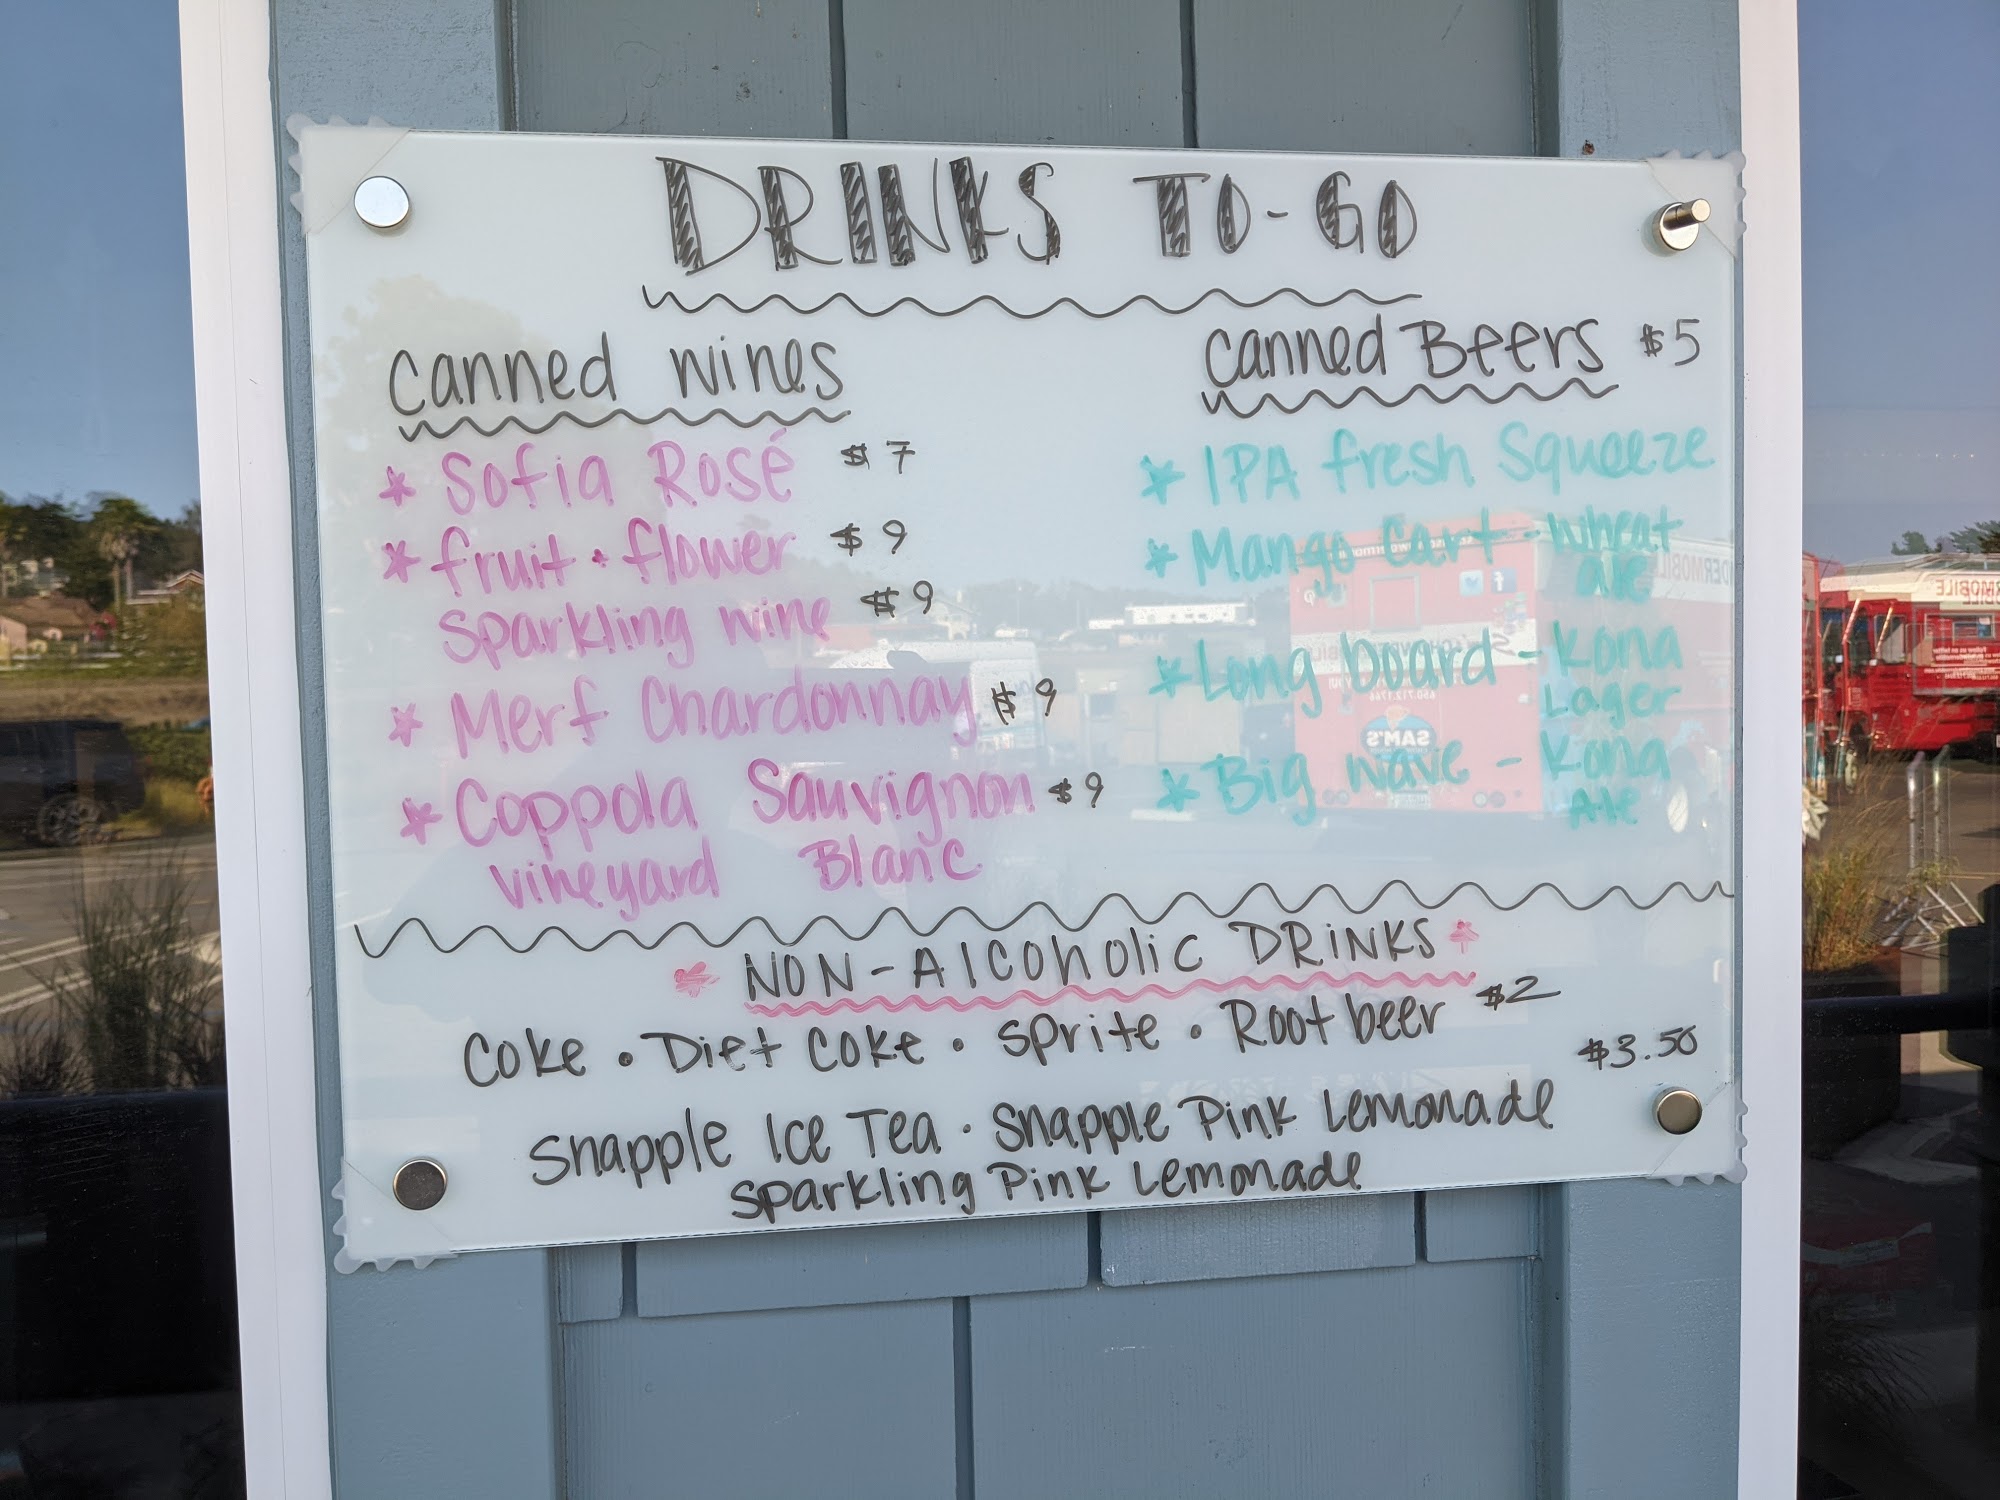 DRINKS TO-GO
Canned Wines
* Sofia Rosé $7
* fruit • flower $9
sparkling wine $9
* Merf Chardonnay $9
* Coppola Sauvignon $9
vineyard Blanc
Canned Beers $5
* IPA fresh Squeeze
* Mango Cart - Wheat
ale
* Long board - Kona
Lager
* Big wave - Kona
Ale
* NON-Alcoholic DRINKS *
Coke • Diet Coke • Sprite • Root beer $2
$3.50
Snapple Ice Tea • Snapple Pink Lemonade
Sparkling Pink Lemonade
SAM'S